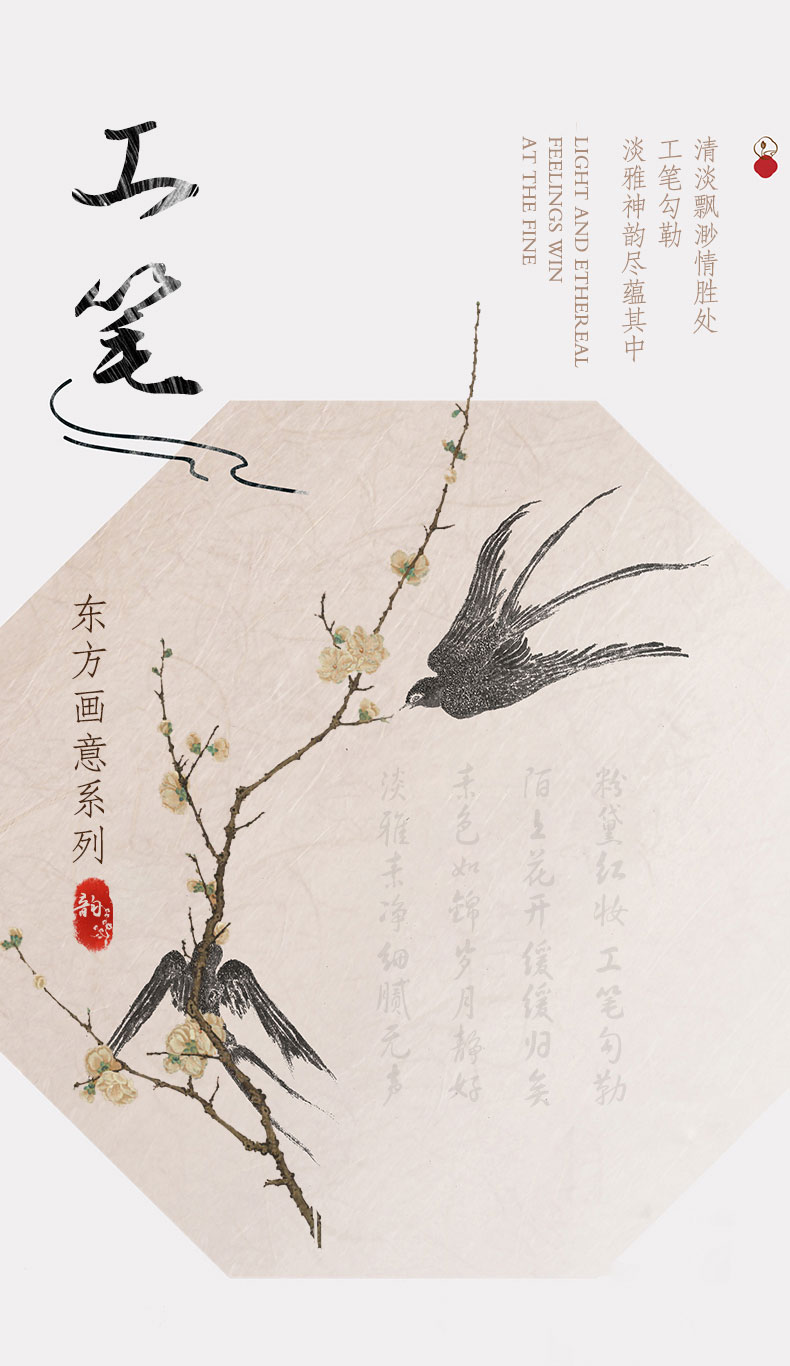 工笔
清淡飘渺情胜处
工笔勾勒
淡雅神韵尽蕴其中
LIGHT AND ETHEREAL
FEELINGS WIN
AT THE FINE
东方画意系列
韵
粉黛红妆工笔勾勒
陌上花开缓缓归矣
素色如锦岁月静好
淡雅素净细腻无声